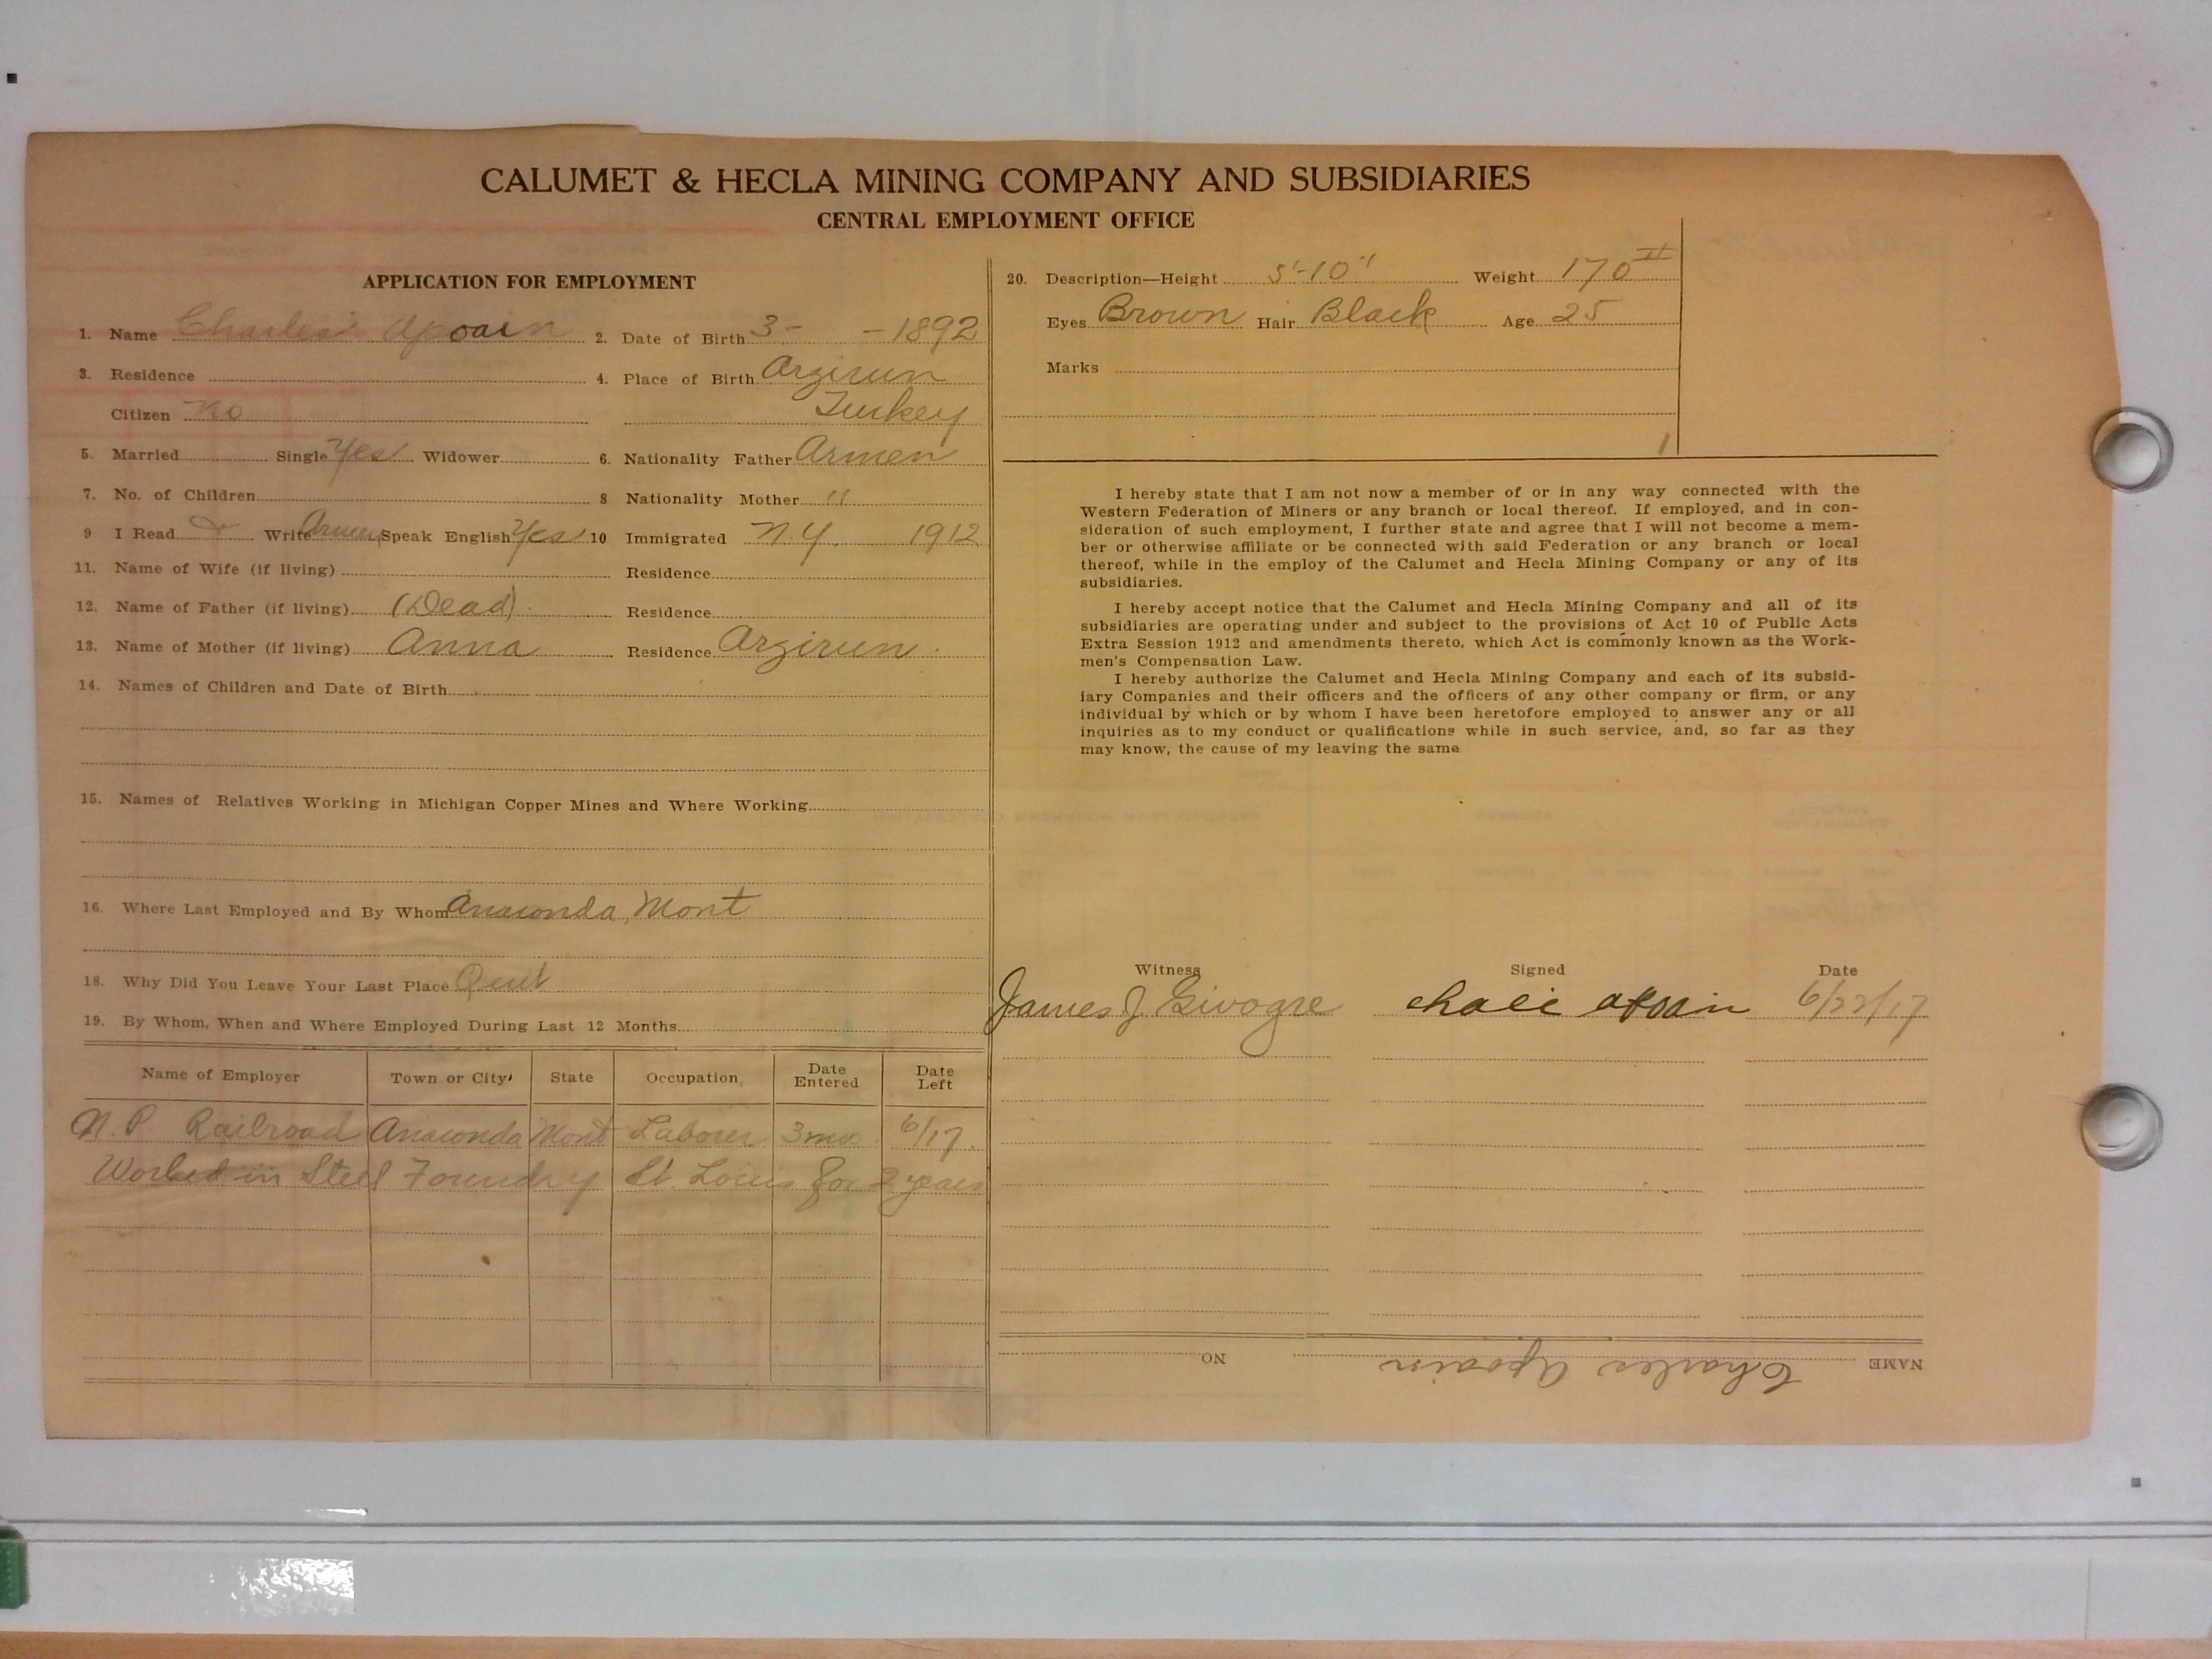 CALUMET & HECLA MINING COMPANY AND SUBSIDIARIES
CENTRAL EMPLOYMENT OFFICE
APPLICATION FOR EMPLOYMENT
1. Name Charles Apoain 2. Date of Birth 3- -1892
3. Residence 4. Place of Birth Argirun
Citizen No Turkey
5. Married Single Yes Widower 6. Nationality Father Armen
7. No. of Children 8 Nationality Mother "
9 I Read & Write Armen Speak English Yes 10 Immigrated N.Y. 1912
11. Name of Wife (if living) Residence
12. Name of Father (if living) (Dead) Residence
13. Name of Mother (if living) Anna Residence Argirun
14. Names of Children and Date of Birth
15. Names of Relatives Working in Michigan Copper Mines and Where Working
16. Where Last Employed and By Whom Anaconda, Mont
18. Why Did You Leave Your Last Place Quit
19. By Whom, When and Where Employed During Last 12 Months
Name of Employer Town or City State Occupation Date Entered Date Left
N.P. Railroad Anaconda Mont Laborer 3 mos 6/17.
Worked in Steel Foundry St. Louis for 2 years
20. Description—Height 5'-10" Weight 170#
Eyes Brown Hair Black Age 25
Marks
I hereby state that I am not now a member of or in any way connected with the
Western Federation of Miners or any branch or local thereof. If employed, and in con-
sideration of such employment, I further state and agree that I will not become a mem-
ber or otherwise affiliate or be connected with said Federation or any branch or local
thereof, while in the employ of the Calumet and Hecla Mining Company or any of its
subsidiaries.
I hereby accept notice that the Calumet and Hecla Mining Company and all of its
subsidiaries are operating under and subject to the provisions of Act 10 of Public Acts
Extra Session 1912 and amendments thereto, which Act is commonly known as the Work-
men's Compensation Law.
I hereby authorize the Calumet and Hecla Mining Company and each of its subsid-
iary Companies and their officers and the officers of any other company or firm, or any
individual by which or by whom I have been heretofore employed to answer any or all
inquiries as to my conduct or qualifications while in such service, and, so far as they
may know, the cause of my leaving the same
Witness Signed Date
James J. Givogre chali apoain 6/22/17
NAME Charles Apoain NO